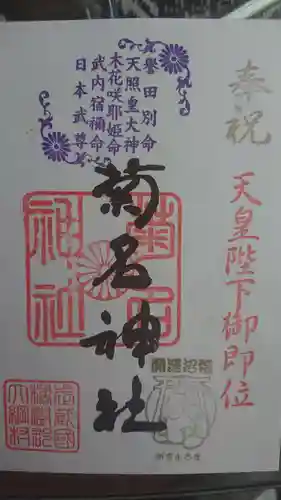 奉祝
天皇陛下御即位
誉田別命
天照皇大神
木花咲耶姫命
武内宿禰命
日本武尊
菊名神社
菊名
神社
武蔵國
橘樹郡
大綱村